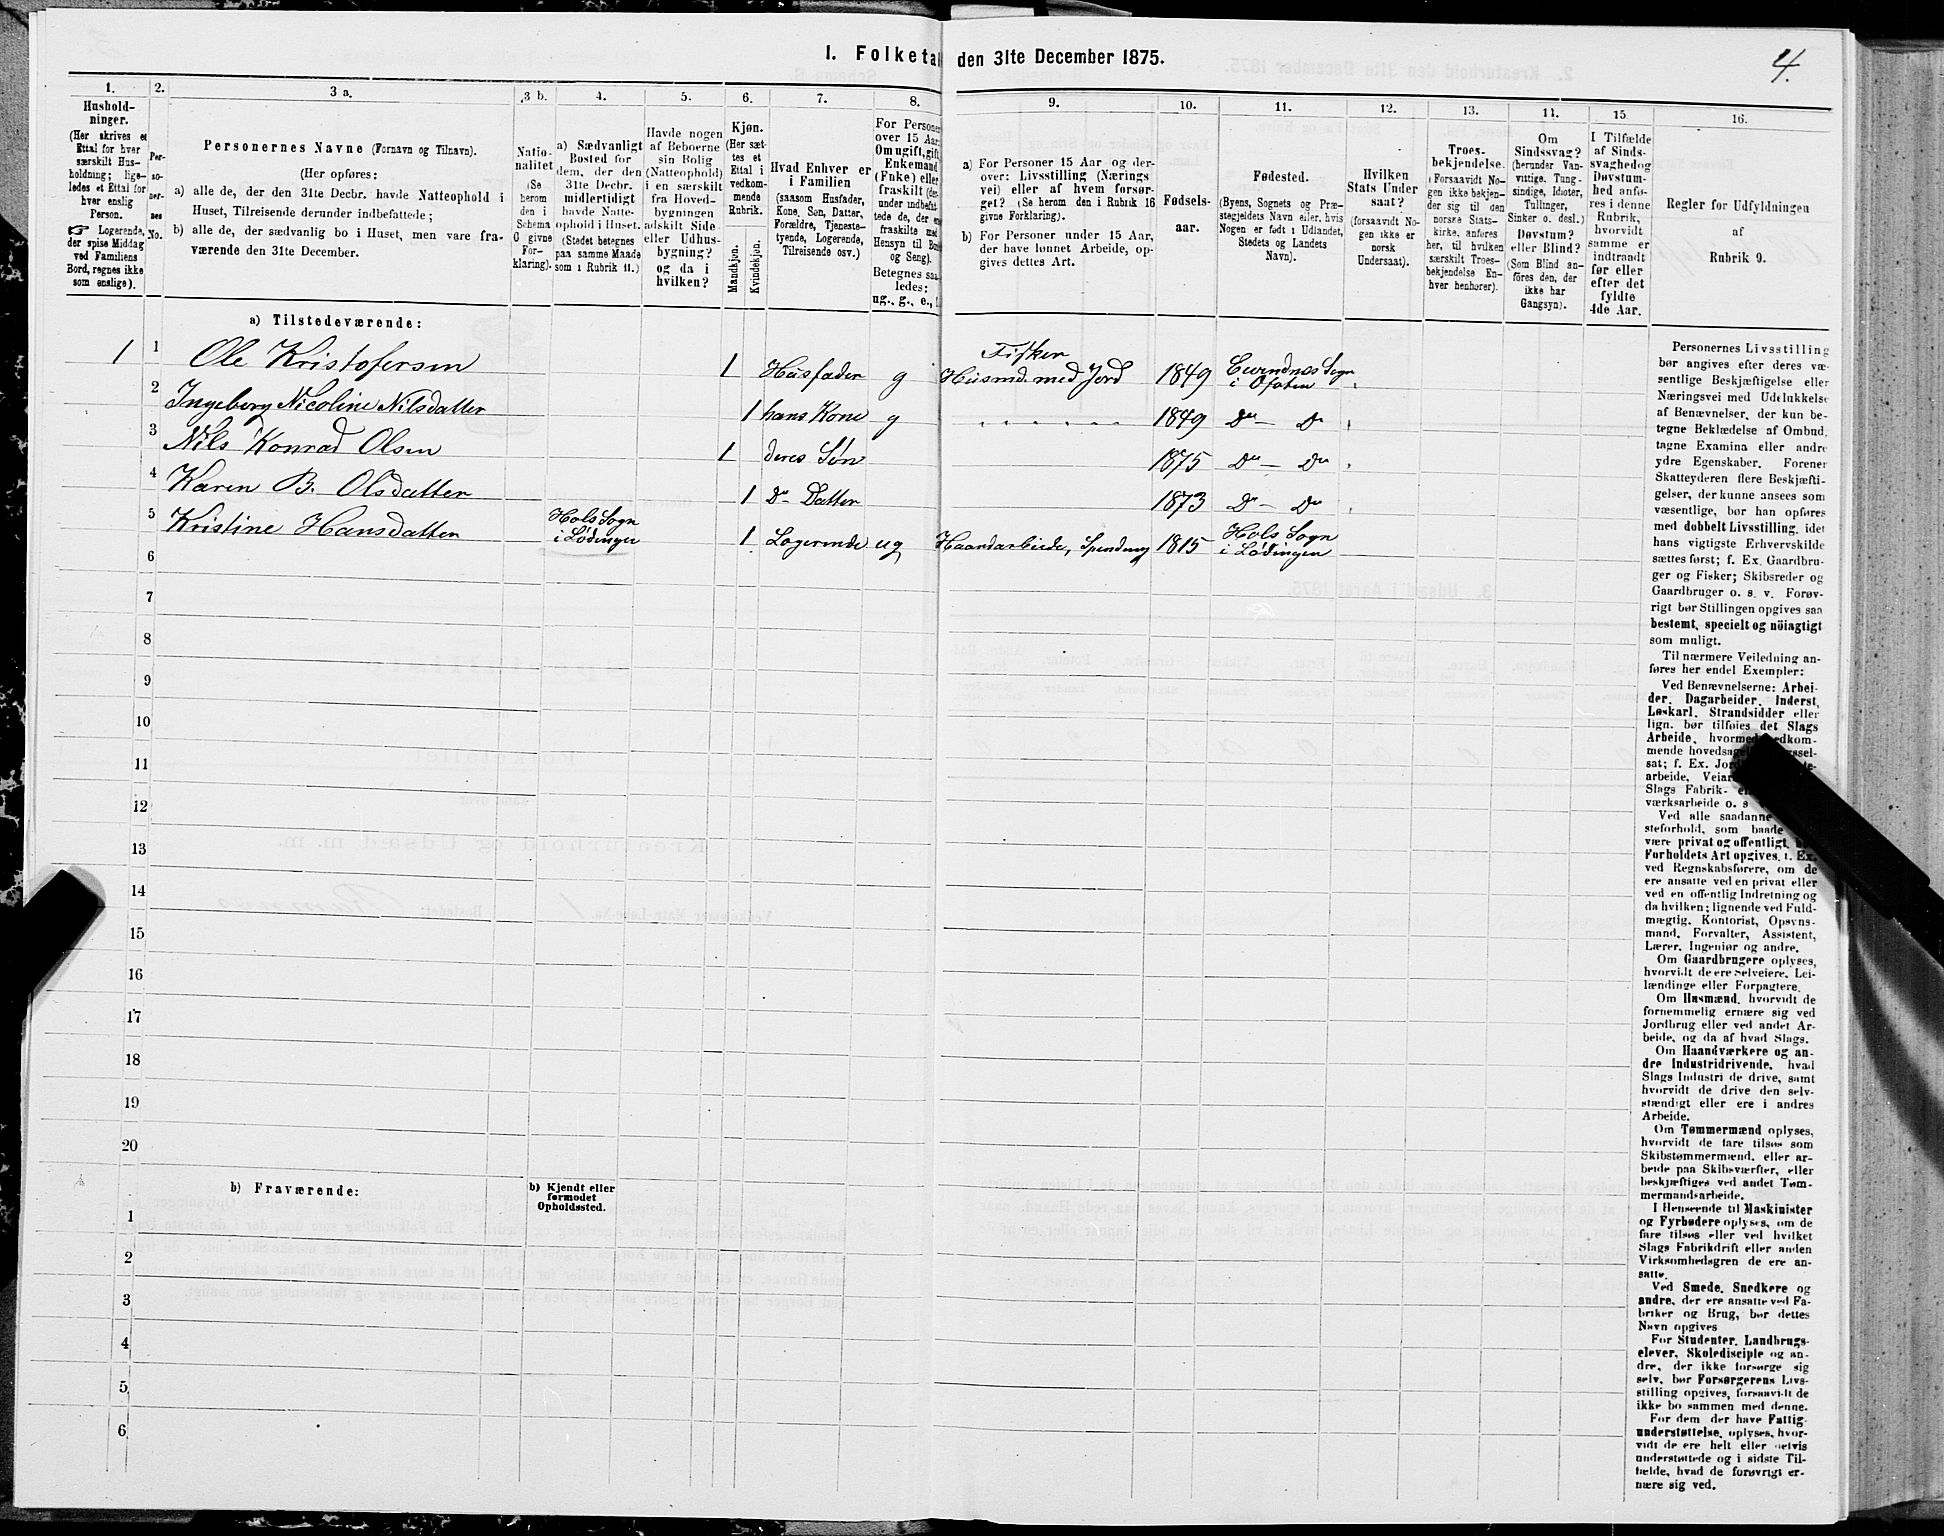 I. Folketal den 31te December 1875.
4.
1.
Hushold-
ninger.
(Her skrives et
Ettal for hver
særskilt Hus-
holdning; lige-
ledes et Ettal for
hver enslig
Person.
☞ Logerende,
der spise Middag
ved Familiens
Bord, regnes ikke
som enslige).
2.
Per-
so-
ner-
nes
No.
3 a.
Personernes Navne (Fornavn og Tilnavn).
(Her opføres:
a) alle de, der den 31te Decbr. havde Natteophold i
Huset, Tilreisende derunder indbefattede;
b) alle de, der sædvanlig bo i Huset, men vare fra-
værende den 31te December.
3 b.
Natio-
nalitet
(Se
herom
den i
Schema
C givne
For-
klaring).
4.
a) Sædvanligt
Bosted for
dem, der den
31te Decbr.
midlertidigt
havde Natte-
ophold i Huset.
(Stedet betegnes
paa samme Maade
som i Rubrik 11.)
5.
Havde nogen
af Beboerne
sin Bolig
(Natteophold)
i en særskilt
fra Hoved-
bygningen
adskilt Side-
eller Udhus-
bygning?
og da i
hvilken?
6.
Kjøn.
(Her sæt-
tes et
Ettal i
vedkom-
mende
Rubrik.
Mandkjøn.
Kvindekjøn.
7.
Hvad Enhver er
i Familien
(saasom Husfader,
Kone, Søn, Datter,
Forældre, Tjeneste-
tyende, Logerende,
Tilreisende osv.)
8.
For Personer
over 15 Aar:
Om ugift, gift,
Enkemand
(Enke) eller
fraskilt (der-
under indbefat-
tede de, der ere
fraskilte med
Hensyn til Bord
og Seng).
Betegnes saa-
ledes:
ug., g., e.,
9.
a) For Personer 15 Aar og der-
over: Livsstilling (Nærings-
vei) eller af hvem forsør-
get? (Se herom den i Rubrik 16
givne Forklaring).
b) For Personer under 15 Aar,
der have lønnet Arbeide, op-
gives dettes Art.
10.
Fødsels-
aar.
11.
Fødested.
(Byens, Sognets og Præ-
stegjeldets Navn eller, hvis
Nogen er født i Udlandet,
Stedets og Landets
Navn).
12.
Hvilken
Stats Under
saat?
(forsaavidt No-
gen ikke er
norsk
Undersaat).
13.
Troes-
bekjendelse.
(Forsaavidt No-
gen ikke bekjen-
der sig til den
norske Stats-
kirke, anføres
her, til hvilken
særskilt Troes-
bekjendelse En-
hver henhører).
14.
Om
Sindssvag?
(herunder Van-
vittige, Tung-
sindige, Idioter,
Tullinger,
Sinker o. desl.)
Døvstum?
eller Blind?
(Som Blind an-
føres den, der
ikke har
Gangsyn).
15.
I Tilfælde
af Sinds-
svaghed og
Døvstum-
hed anfø-
res i denne
Rubrik,
hvorvidt
samme er
indtraadt
før eller
efter det
fyldte
4de Aar.
16.
Regler for Udfyldningen
af
Rubrik 9.
a) Tilstedeværende:
1 1 Ole Kristofersen 1 Husfader g Fisker
Husmd. med Jord 1849 Evendnes Sogn
i Ofoten
2 Ingeborg Nicoline Nilsdatter 1 hans Kone g " " " " " " 1849 Do — Do
3 Nils Konrad Olsen 1 deres Søn 1875 Do — Do
4 Karen B. Olsdatter 1 Do Datter 1873 Do — Do
5 Kristine Hansdatter Hols Sogn
i Lødingen 1 Logerende ug Haandarbeide, Spinding 1815 Hols Sogn
i Lødingen
6
7
8
9
10
11
12
13
14
15
16
17
18
19
20
b) Fraværende:
b) Kjendt eller
formodet
Opholdssted.
1
2
3
4
5
6
Personernes Livsstilling
bør angives efter deres væ-
sentlige Beskjæftigelse eller
Næringsvei med Udelukkelse
af Benævnelser, der kun be-
tegne Beklædelse af Ombud,
tagne Examina eller andre
ydre Egenskaber. Forener
Skatteyderen flere Beskjæfti-
gelser, der kunne ansees som
væsentlige, bør han opføres
med dobbelt Livsstilling, idet
hans vigtigste Erhvervskilde
sættes først; f. Ex. Gaardbru-
ger og Fisker; Skibsreder og
Gaardbruger o. s. v. Forøv-
rigt bør Stillingen opgives saa
bestemt, specielt og nöiagtigt
som muligt.
Til nærmere Veiledning an-
føres her endel Exempler:
Ved Benævnelserne: Arbei-
der, Dagarbeider, Inderst,
Løskarl, Strandsidder eller
lign. bør tilføies det Slags
Arbeide, hvormed vedkom-
mende hovedsagelig
sat; f. Ex.
arbeide,
Slags Fabrik-
værksarbeide o. s
Ved alle saadanne
steforhold, som baade
være privat og offentligt,
Forholdets Art opgives, f. Ex.
ved Regnskabsførere, om de
ere ansatte ved en privat eller
ved en offentlig Indretning og
da hvilken; lignende ved Fuld-
mægtig, Kontorist, Opsyns-
mand, Forvalter, Assistent,
Lærer, Ingeniør og andre.
Om Gaardbrugere oplyses,
hvorvidt de ere Selveiere, Lei-
lændinge eller Forpagtere.
Om Husmænd, hvorvidt de
fornemmelig ernære sig ved
Jordbrug eller ved andet Ar-
beide, og da af hvad Slags.
Om Haandværkere og an-
dre Industridrivende, hvad
Slags Industri de drive, samt
hvorvidt de drive den selv-
stændigt eller ere i andres
Arbeide.
Om Tømmermænd oplyses,
hvorvidt de fare tilsøs som
Skibstømmermænd, eller ar-
beide paa Skibsværfter, eller
beskjæftiges ved andet Tøm-
mermandsarbeide.
I Henseende til Maskinister
og Fyrbødere oplyses, om de
fare tilsøs eller ved hvilket
Slags Fabrikdrift eller anden
Virksomhedsgren de ere an-
satte.
Ved Smede, Snedkere og
andre, der ere ansatte ved Fa-
briker og Brug, bør dettes
Navn opgives
For Studenter, Landbrugs-
elever, Skoledisciple og an-
dre, der ikke forsørge sig
selv, bør Forsørgerens Livs-
stilling opgives, forsaavidt de
ikke bo sammen med denne.
For dem der have Fattig-
understøttelse, oplyses, hvor-
vidt de ere helt eller delvis
understøttede og i sidste Til-
fælde, hvad de forøvrigt er-
nære sig ved.